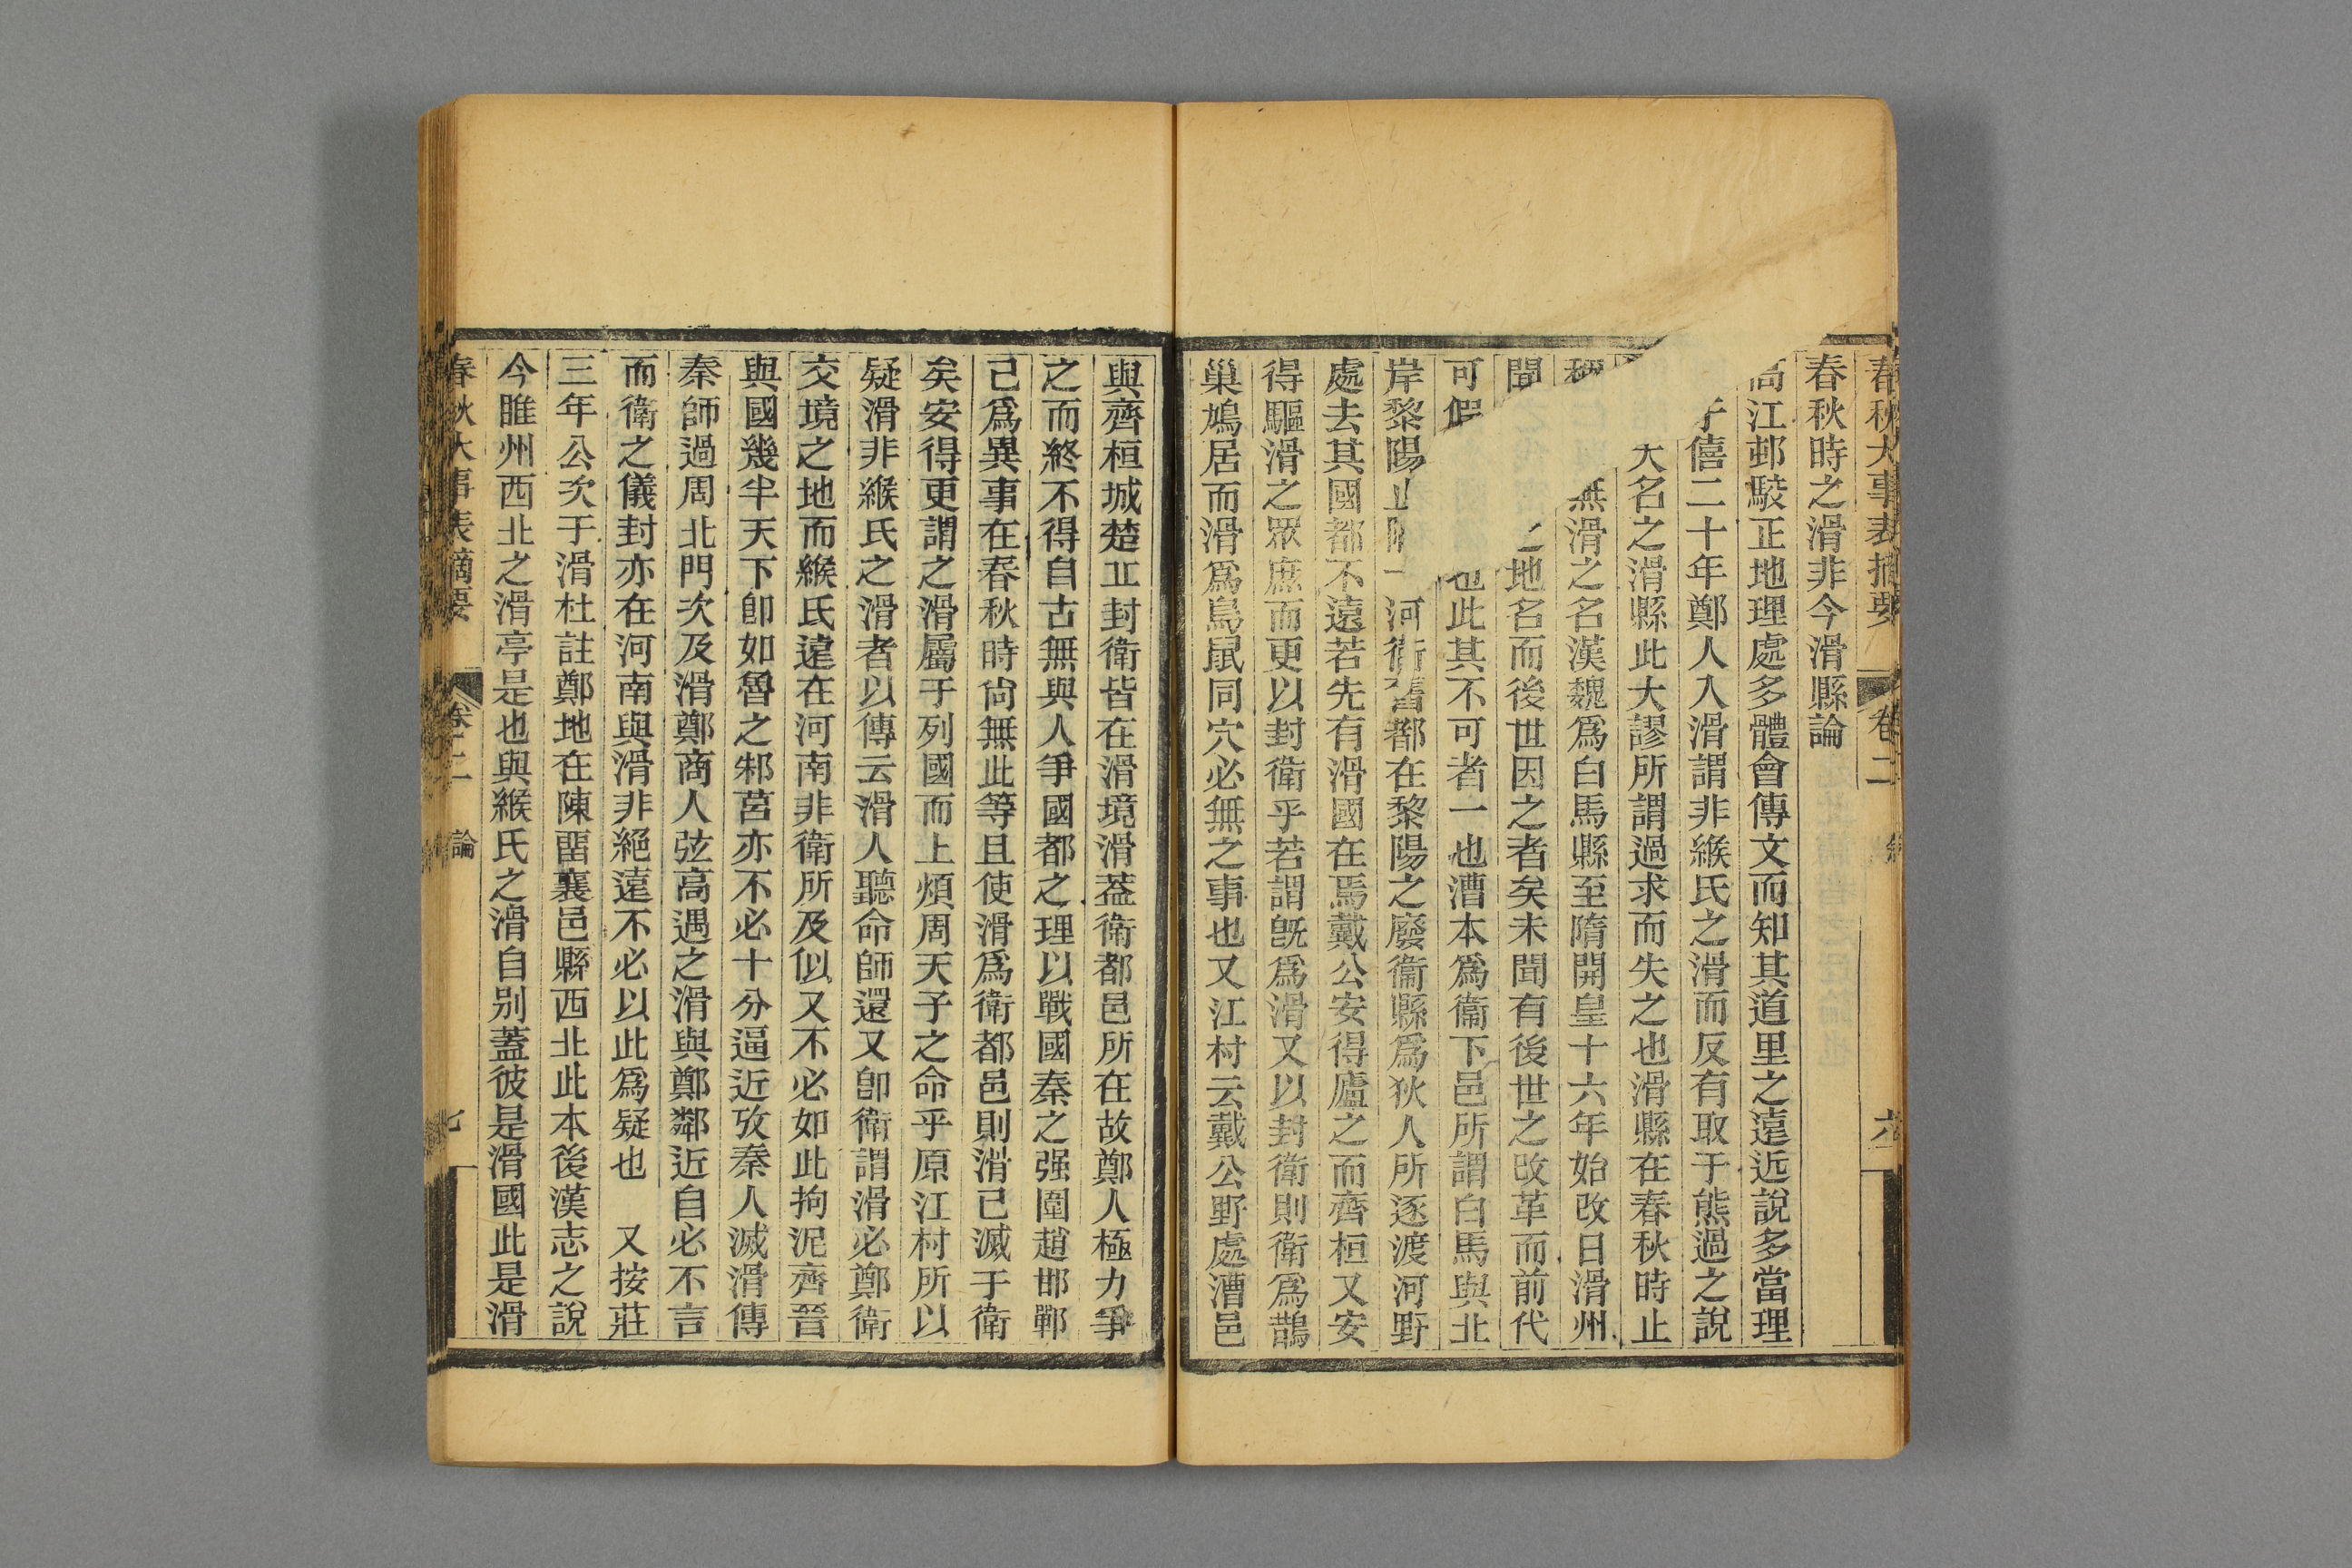 春秋大事表摘要 卷二 六
春秋時之滑非今滑縣論
高江邨駮正地理處多體會傳文而知其道里之遠近說多當理
子僖二十年鄭人入滑謂非緱氏之滑而反有取于熊過之說
大名之滑縣此大謬所謂過求而失之也滑縣在春秋時止
無滑之名漢魏爲白馬縣至隋開皇十六年始改曰滑州
聞之地名而後世因之者矣未聞有後世之改革而前代
可假也此其不可者一也漕本爲衞下邑所謂白馬與北
岸黎陽止河衛舊都在黎陽之廢衞縣爲狄人所逐渡河野
處去其國都不遠若先有滑國在焉戴公安得廬之而齊桓又安
得驅滑之眾庶而更以封衛乎若謂旣爲滑又以封衛則衛爲鵲
巢鳩居而滑爲鳥鼠同穴必無之事也又江村云戴公野處漕邑
與齊桓城楚丘封衛皆在滑境滑葢衛都邑所在故鄭人極力爭
之而終不得自古無與人爭國都之理以戰國秦之强圍趙邯鄲
己爲異事在春秋時尙無此等且使滑爲衛都邑則滑已滅于衛
矣安得更謂之滑屬于列國而上煩周天子之命乎原江村所以
疑滑非緱氏之滑者以傳云滑人聽命師還又卽衛謂滑必鄭衛
交境之地而緱氏遠在河南非衛所及似又不必如此拘泥齊晉
與國幾半天下卽如魯之邾莒亦不必十分逼近攷秦人滅滑傳
秦師過周北門次及滑鄭商人弦高遇之滑與鄭鄰近自必不言
而衛之儀封亦在河南與滑非絕遠不必以此爲疑也 又按莊
三年公次于滑杜註鄭地在陳畱襄邑縣西北此本後漢志之說
今睢州西北之滑亭是也與緱氏之滑自别葢彼是滑國此是滑
春秋大事表摘要 卷二 論 七